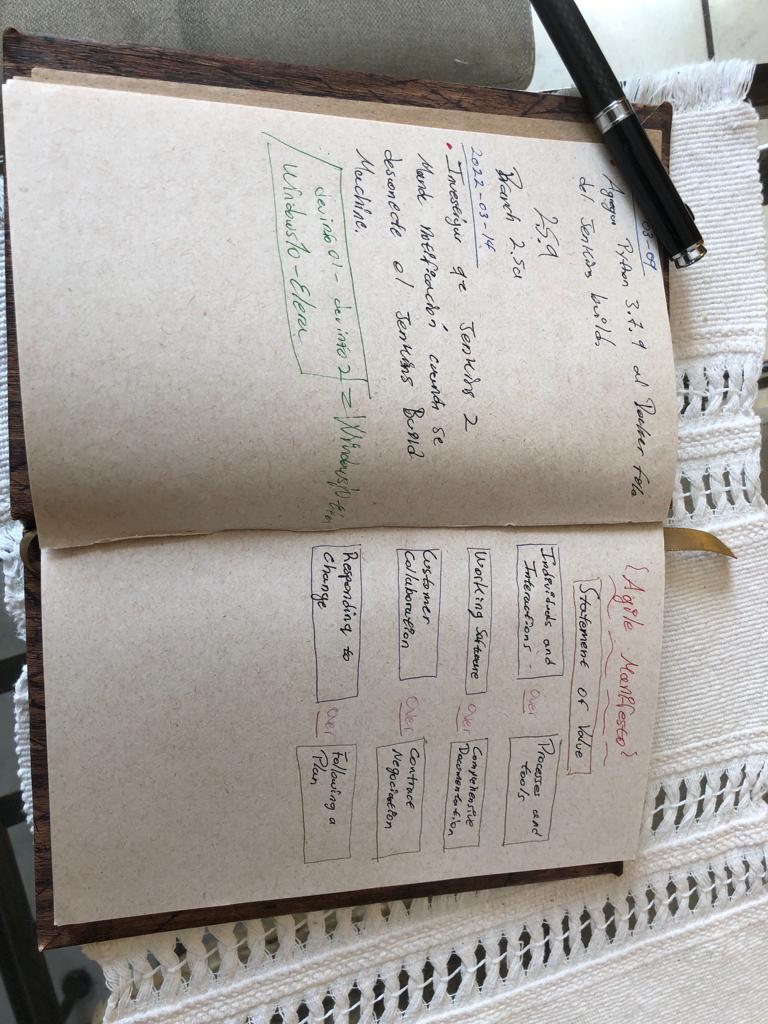 03-09
• Agregar Python 3.7.9 al Docker
del Jenkins builds
2.5.9
Branch 2.5d
2022-03-14
• Investigar qe Jenkins 2
Mande notificación cuando se
desconecte el Jenkins Build
Machine.
devinfo 01 - devinfo 2 =
Windows10-
{Agile Manifesto}
Statement of Value
Individuals and
Interactions
over
Processes and
tools
Working Software
over
Comprehensive
Documentation
Customer
Collaboration
over
Contract
Negociation
Responding to
change
over
Following a
Plan